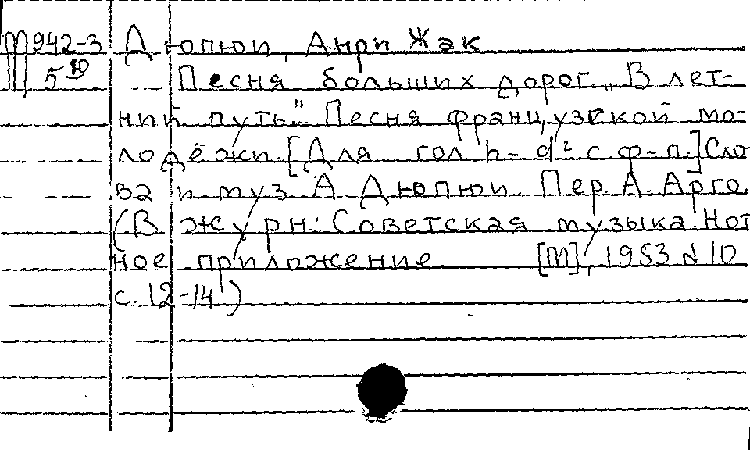 М 942-3 Дюпюи, Анри Жак
5 10 Песня больших дорог. „В лет-
ний путь" Песня французской мо-
лодёжи. [Для гол. h-d² с ф-п.] Сло
ва и муз. А. Дюпюи. Пер. А. Арго
(В журн: Советская музыка. Нот
ное приложение [М], 1953 № 10
с. 12-14)